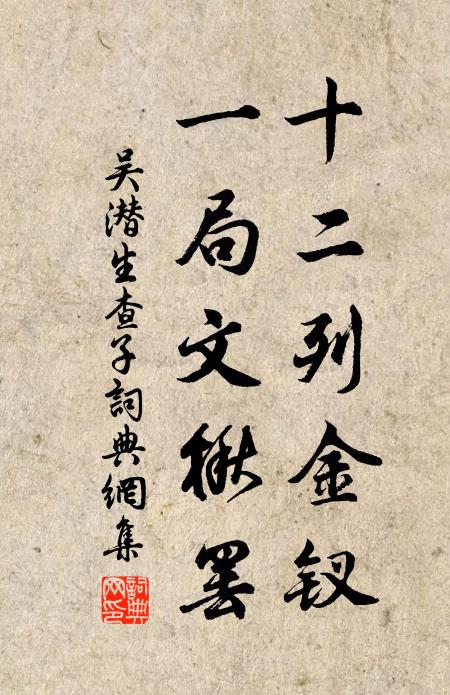 十二列金钗
一局文楸罢
吴潜生查子詞典網集
詞典网印